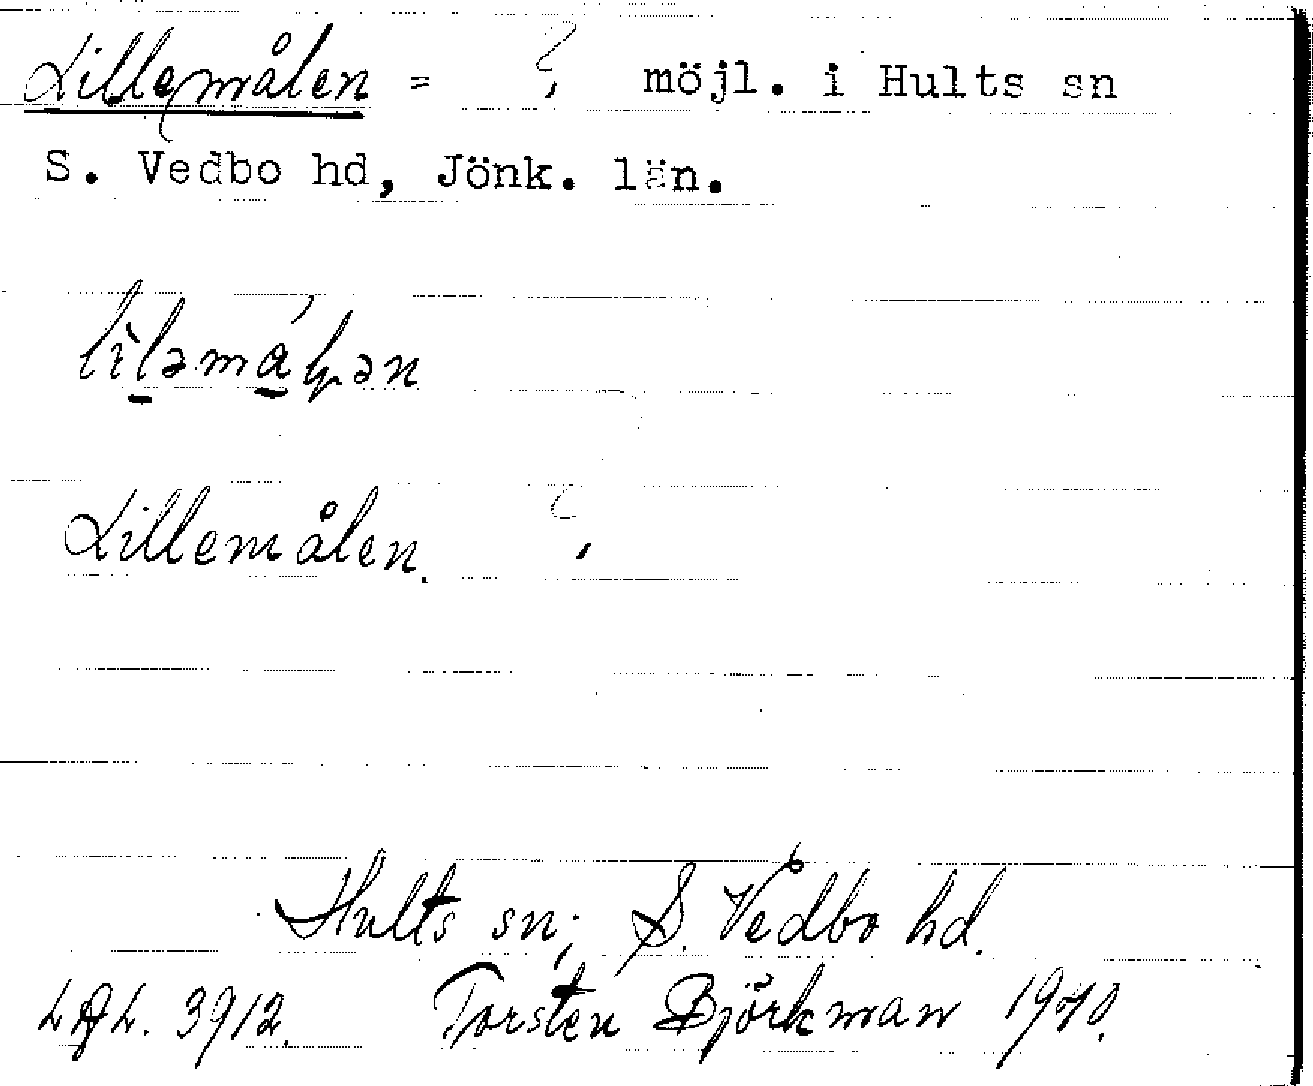 Lillemålen = ? möjl. i Hults sn
S. Vedbo hd, Jönk. län.
Lillemålen. ?
Hults sn; S. Vedbo hd.
3912. Torsten Björkman 1940.